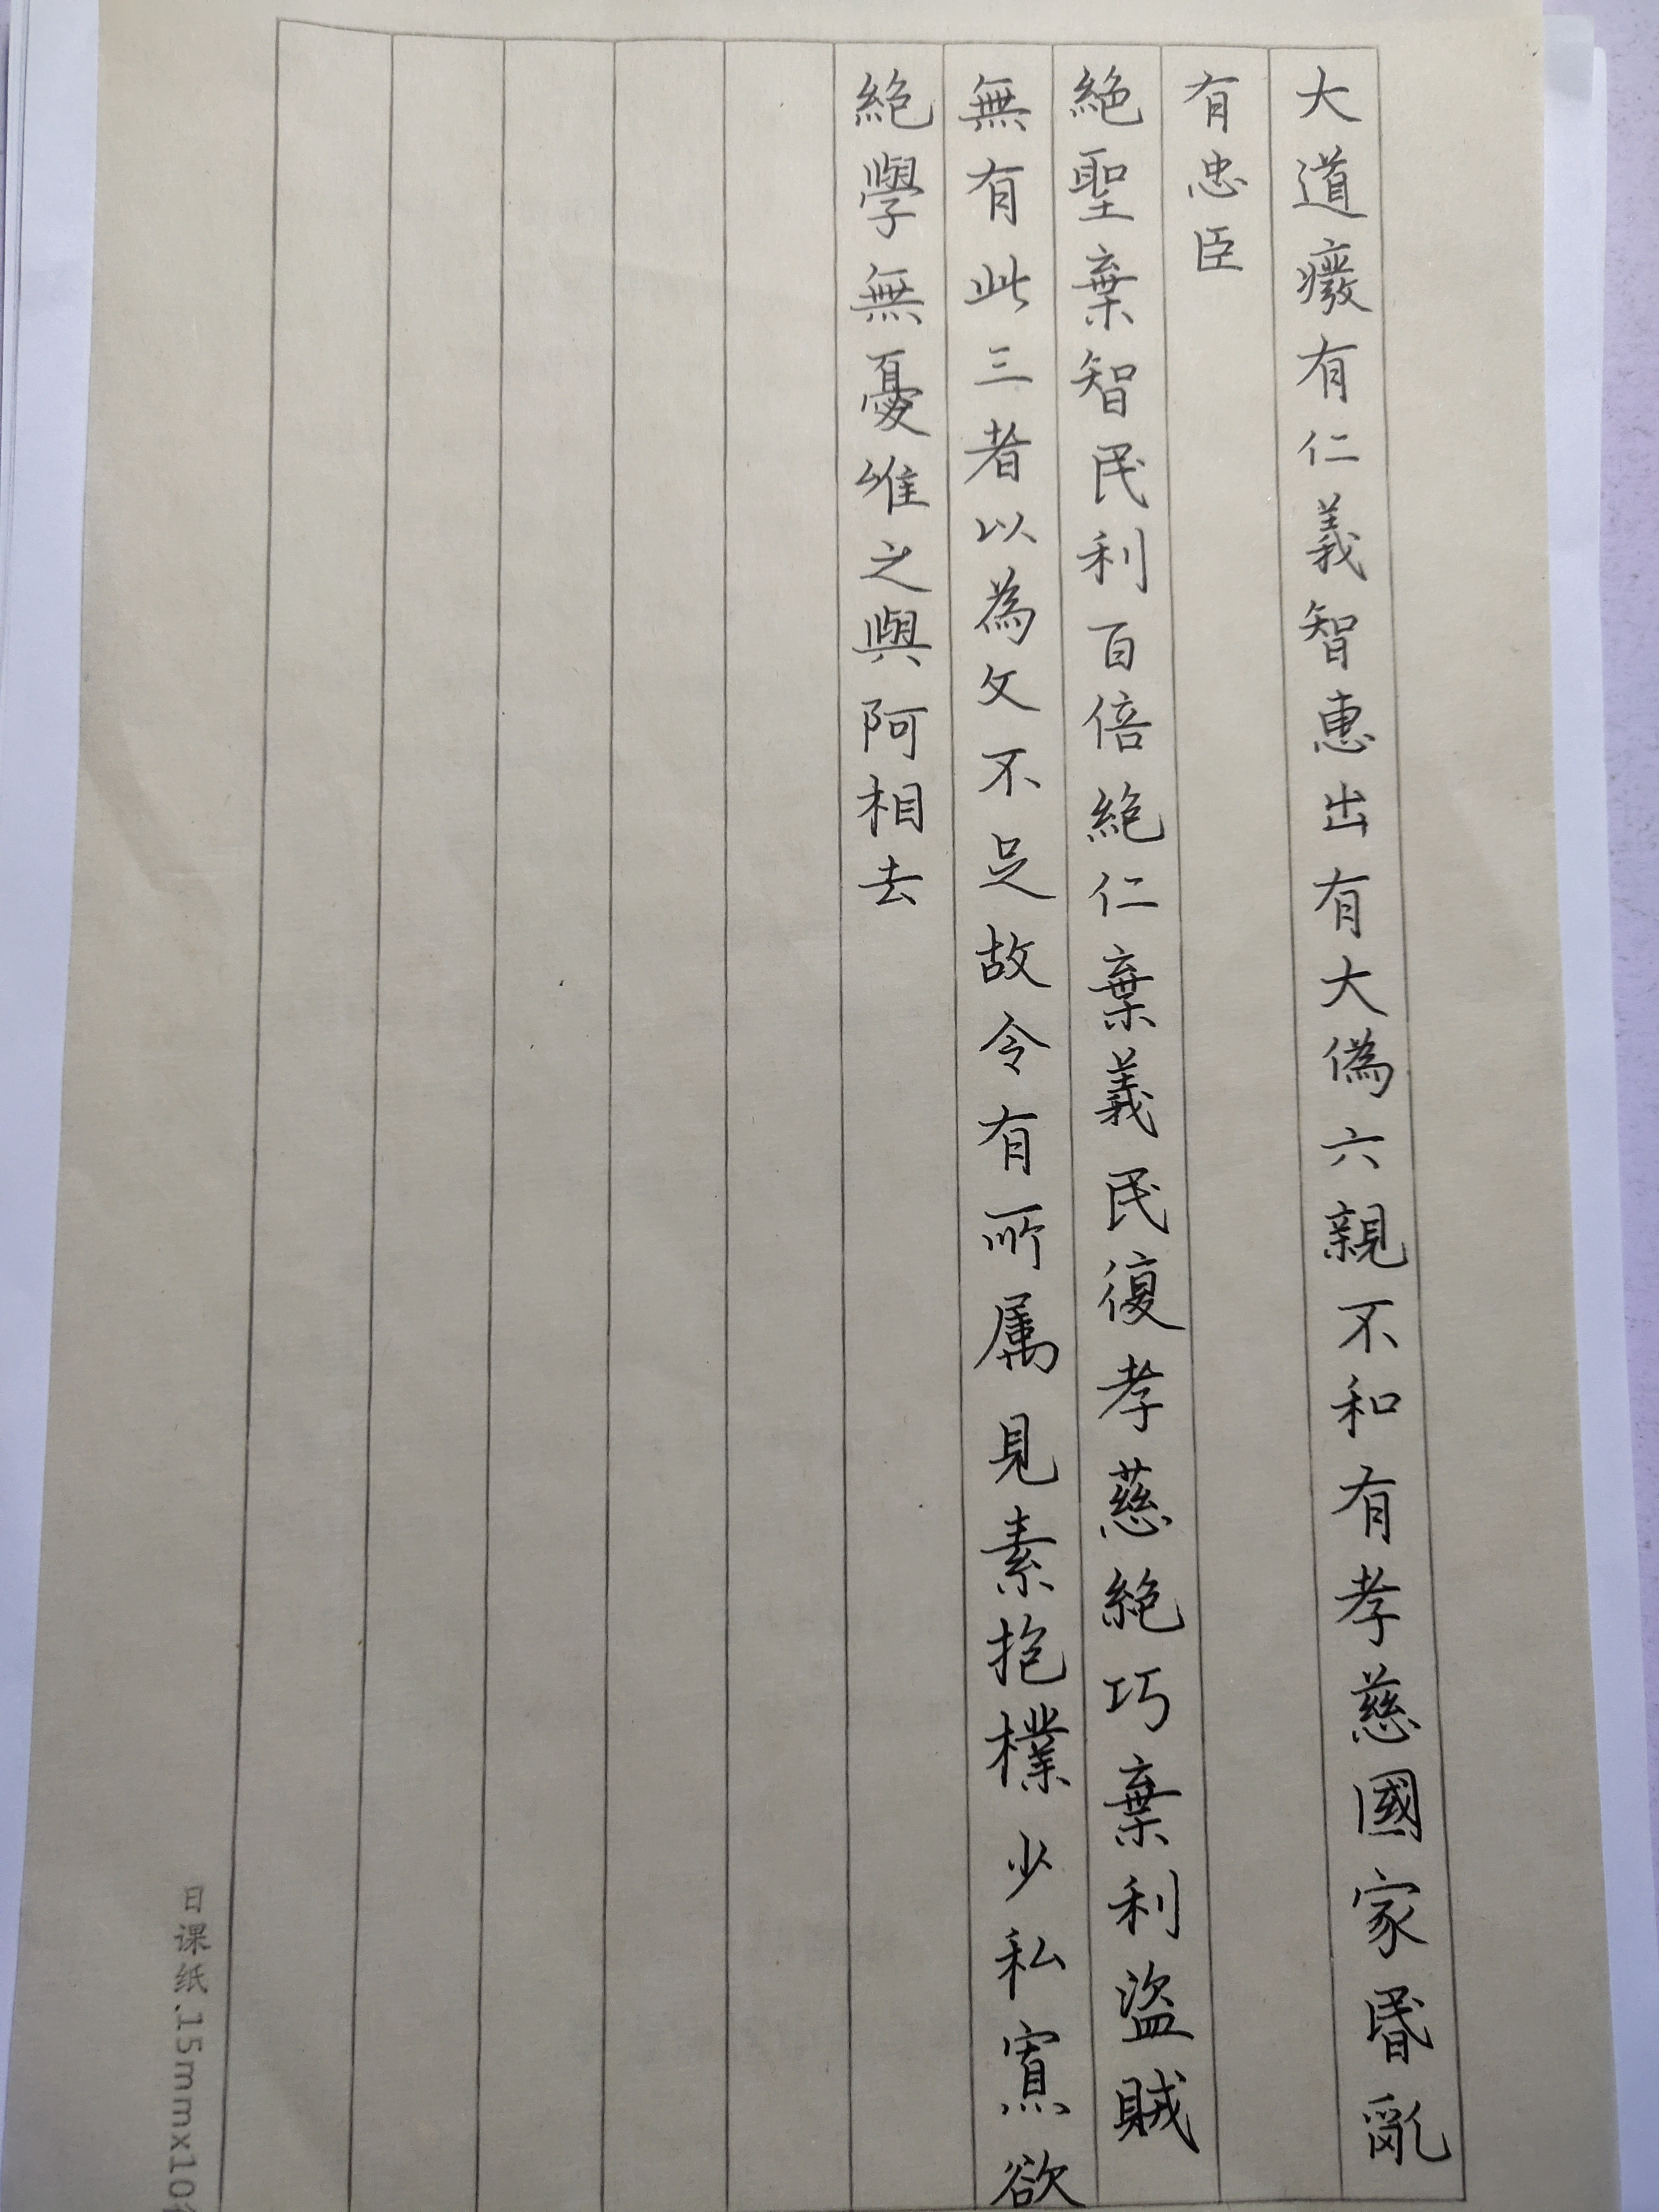 大道癈有仁義智惠出有大偽六親不和有孝慈國家昬亂
有忠臣
絶聖棄智民利百倍絶仁棄義民復孝慈絶巧棄利盜賊
無有此三者以為文不足故令有所属見素抱樸少私寡欲
絶學無憂唯之與阿相去
日课纸.15mmx10